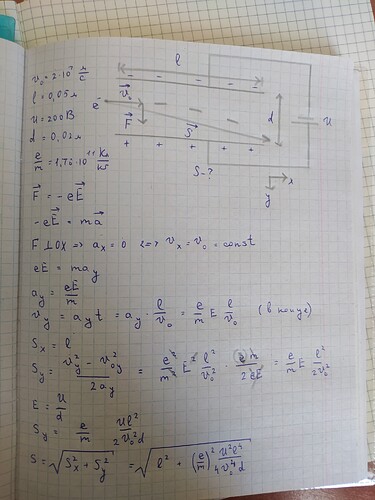 v₀ = 2·10⁷ м/с
l = 0,05 м
U = 200 В
d = 0,02 м
e/m = 1,76·10¹¹ Кл/кг
l
- - - - -
v⃗₀
e
F⃗
S⃗
d
U
+ + + + +
S - ?
x
y
F⃗ = -eE⃗
-eE⃗ = ma⃗
F ⊥ OX => aₓ = 0 <=> vₓ = v₀ = const
eE = ma_y
a_y = eE/m
v_y = a_y t = a_y · l/v₀ = e/m E l/v₀ (в конце)
Sₓ = l
S_y = (v_y² - v₀_y²)/(2a_y) = e²/m² E² l²/v₀² · m/(2eE) = e/m E l²/(2v₀²)
E = U/d
S_y = e/m Ul²/(2v₀²d)
S = √(Sₓ² + S_y²) = √(l² + (e/m)² U²l⁴/(4v₀⁴d²))